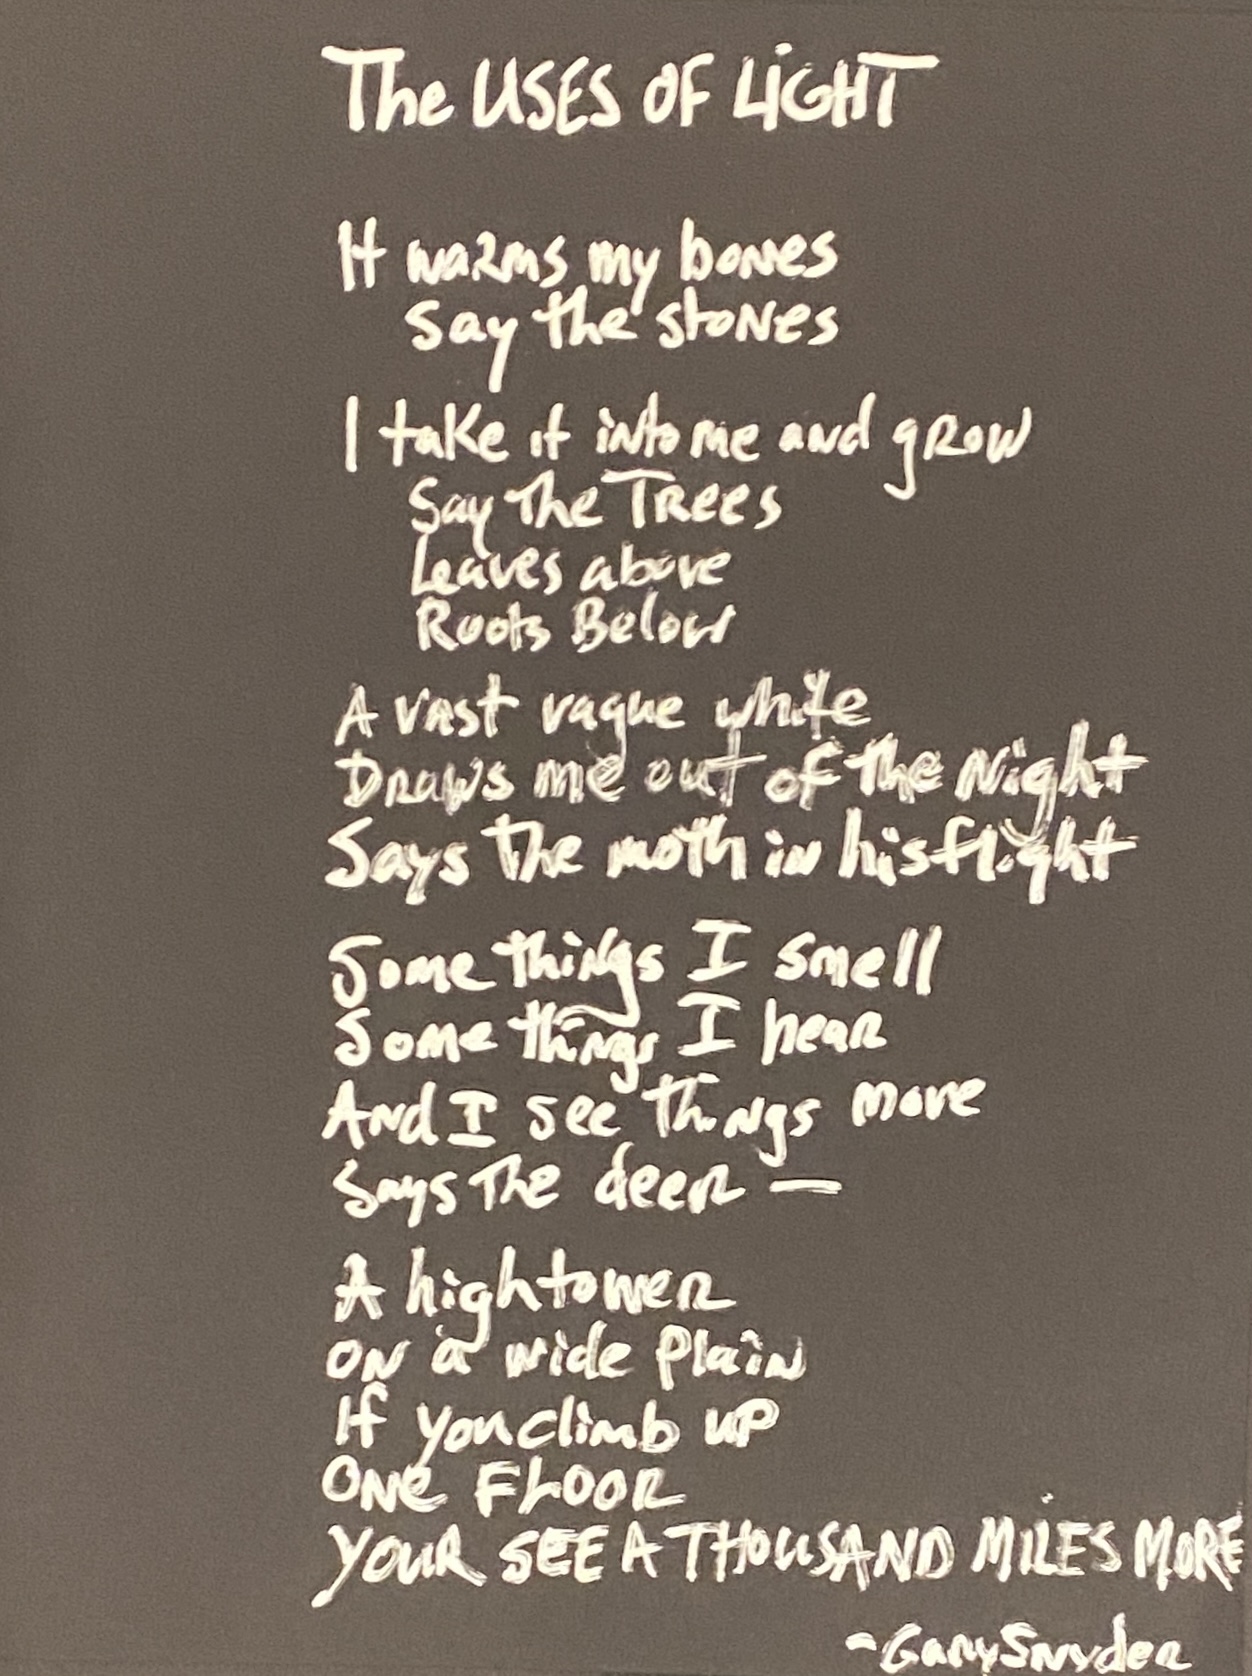 The USES OF LIGHT
It warms my bones
Say the stones
I take it into me and grow
Say The Trees
Leaves above
Roots Below
A vast vague white
Draws me out of the Night
Says the moth in his flight
Some things I smell
Some things I hear
And I see things more
Says The deer —
A high tower
on a wide Plain
If you climb up
ONE FLOOR
YOUR SEE A THOUSAND MILES MORE
- Gary Snyder